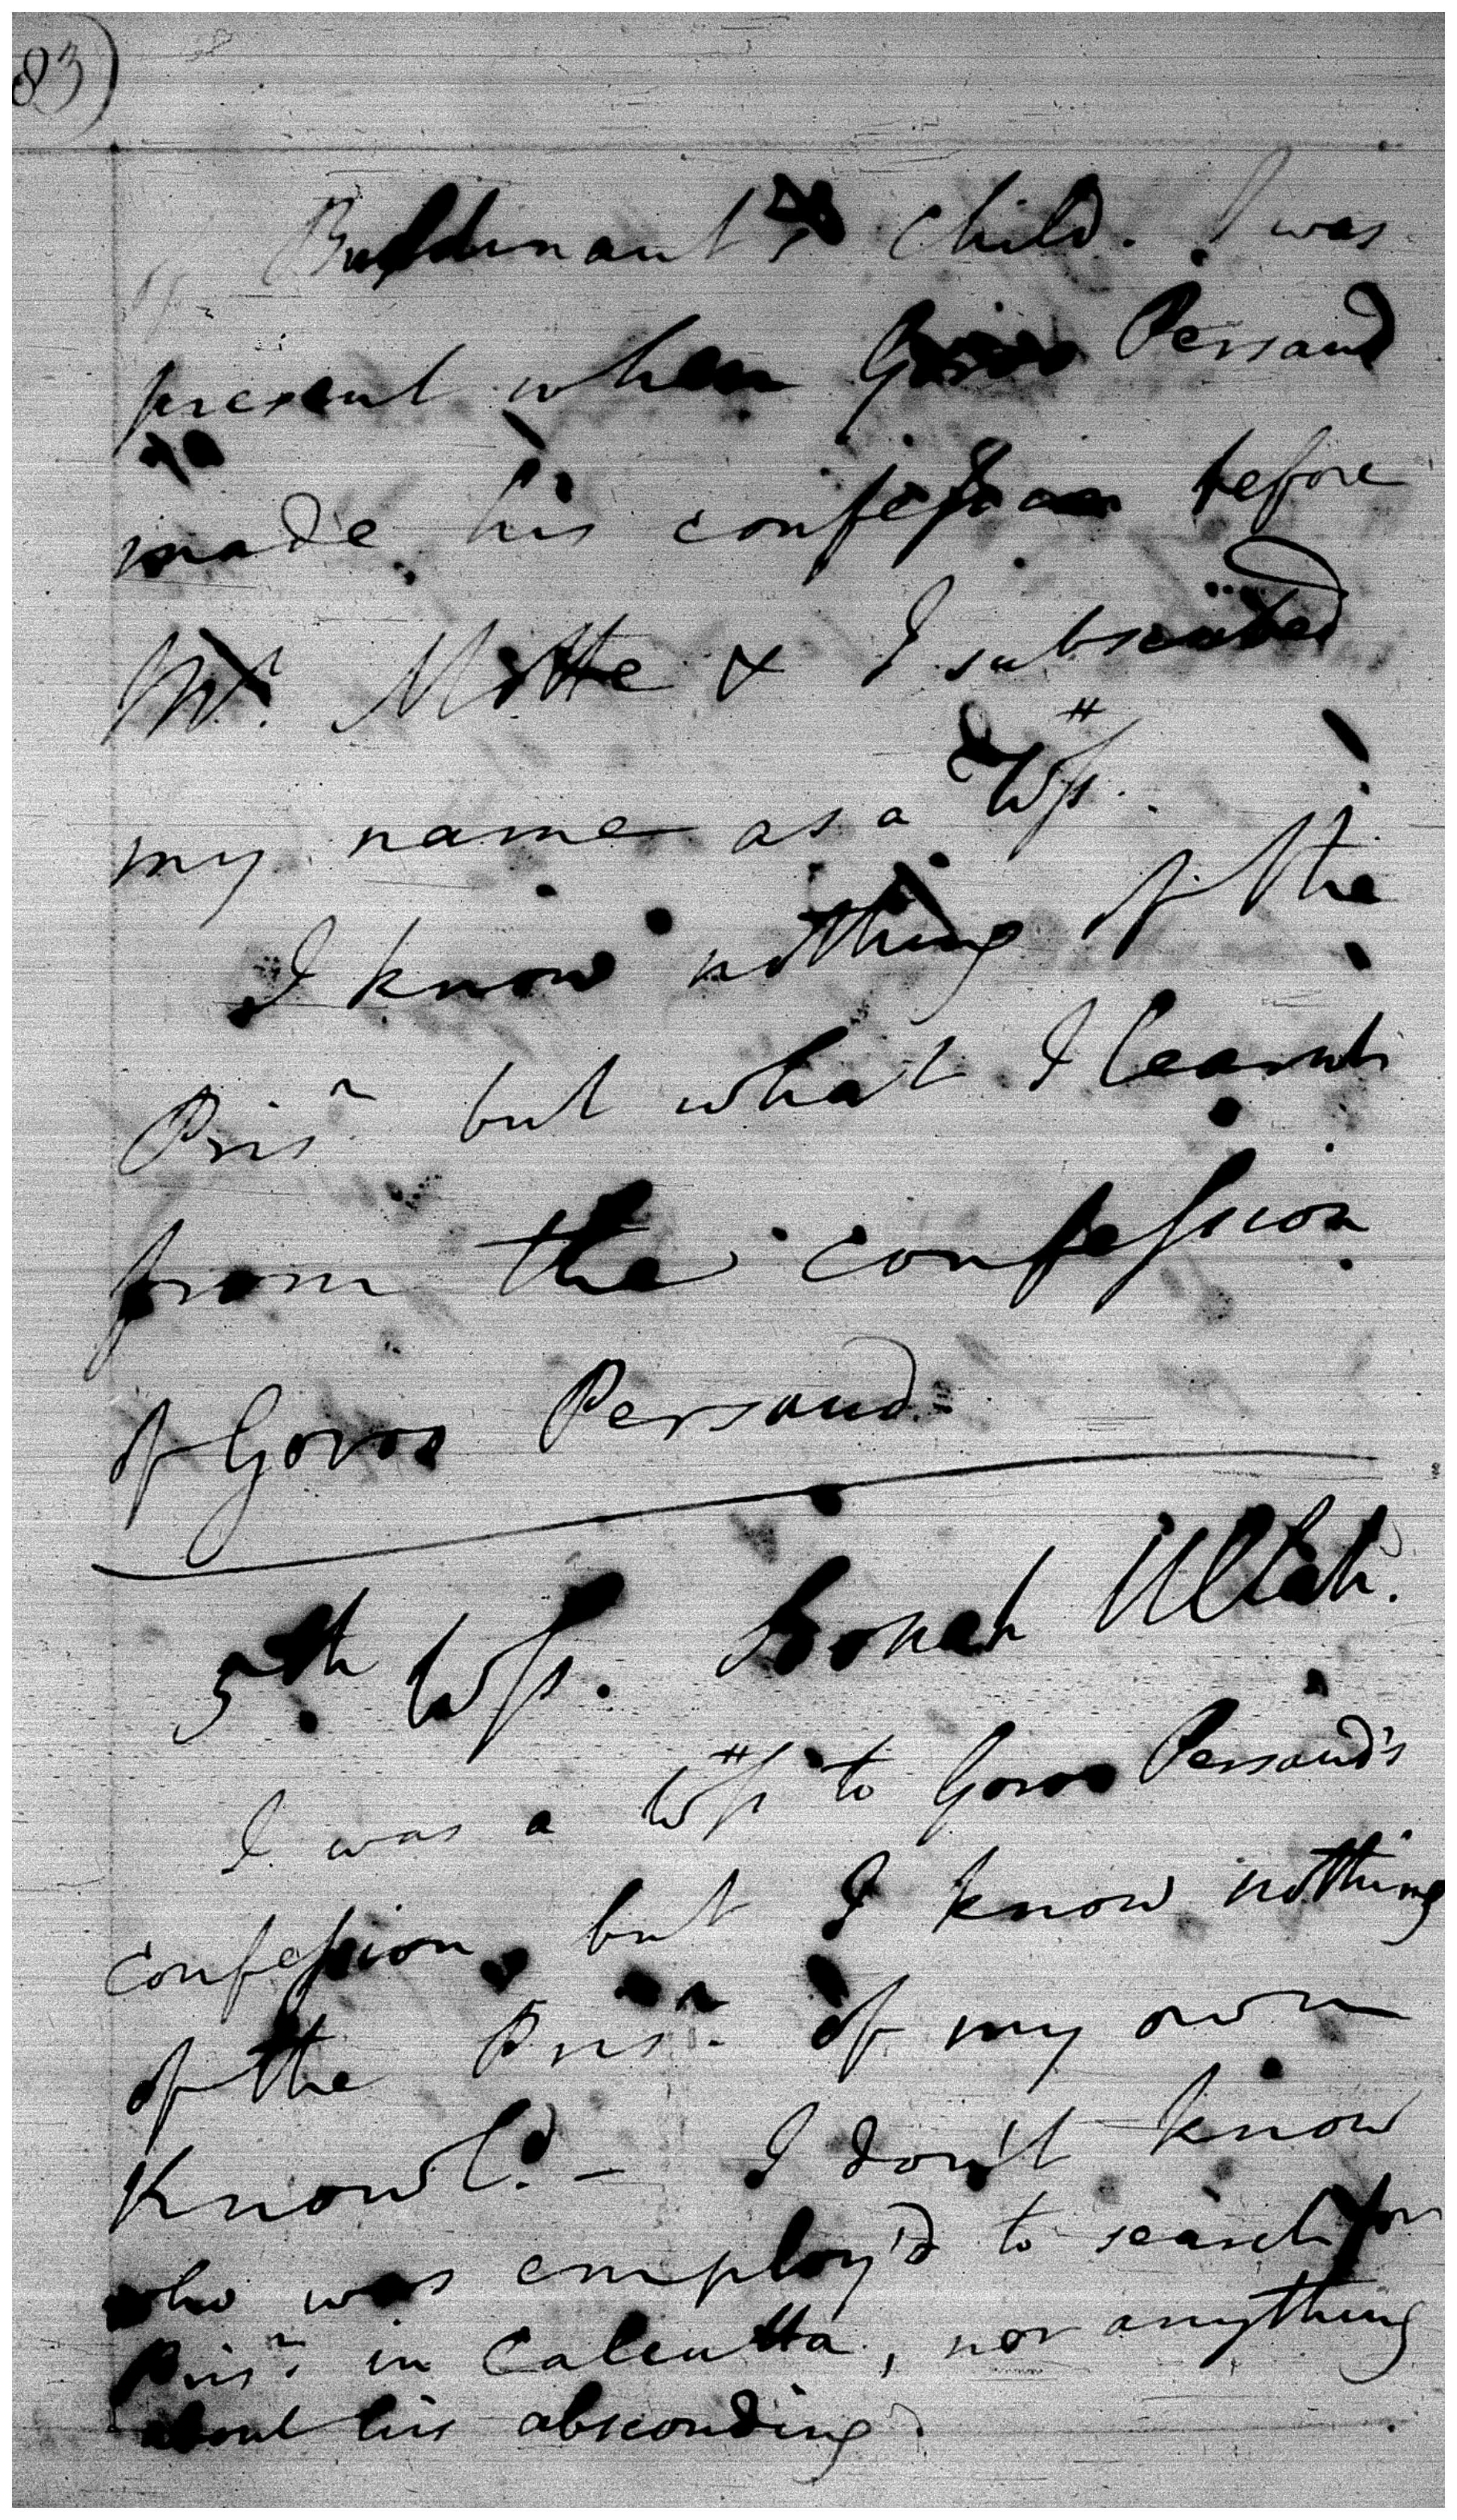 83)
Buddinaut's child. I was
present when Goroo Persaud
made his confession before
Mr. Motte & I subscribed
my name as a Wss.
I know nothing of the
Prisr but what I learnt
from the confession
of Goroo Persaud.
5th Wss. Ullah.
I was a Wss to Goroo Persaud's
confession, but I know nothing
of the Prisr. of my own
Knowld. – I don't know
who was employ'd to search for
Prisr. in Calcutta, nor anything
about his absconding.